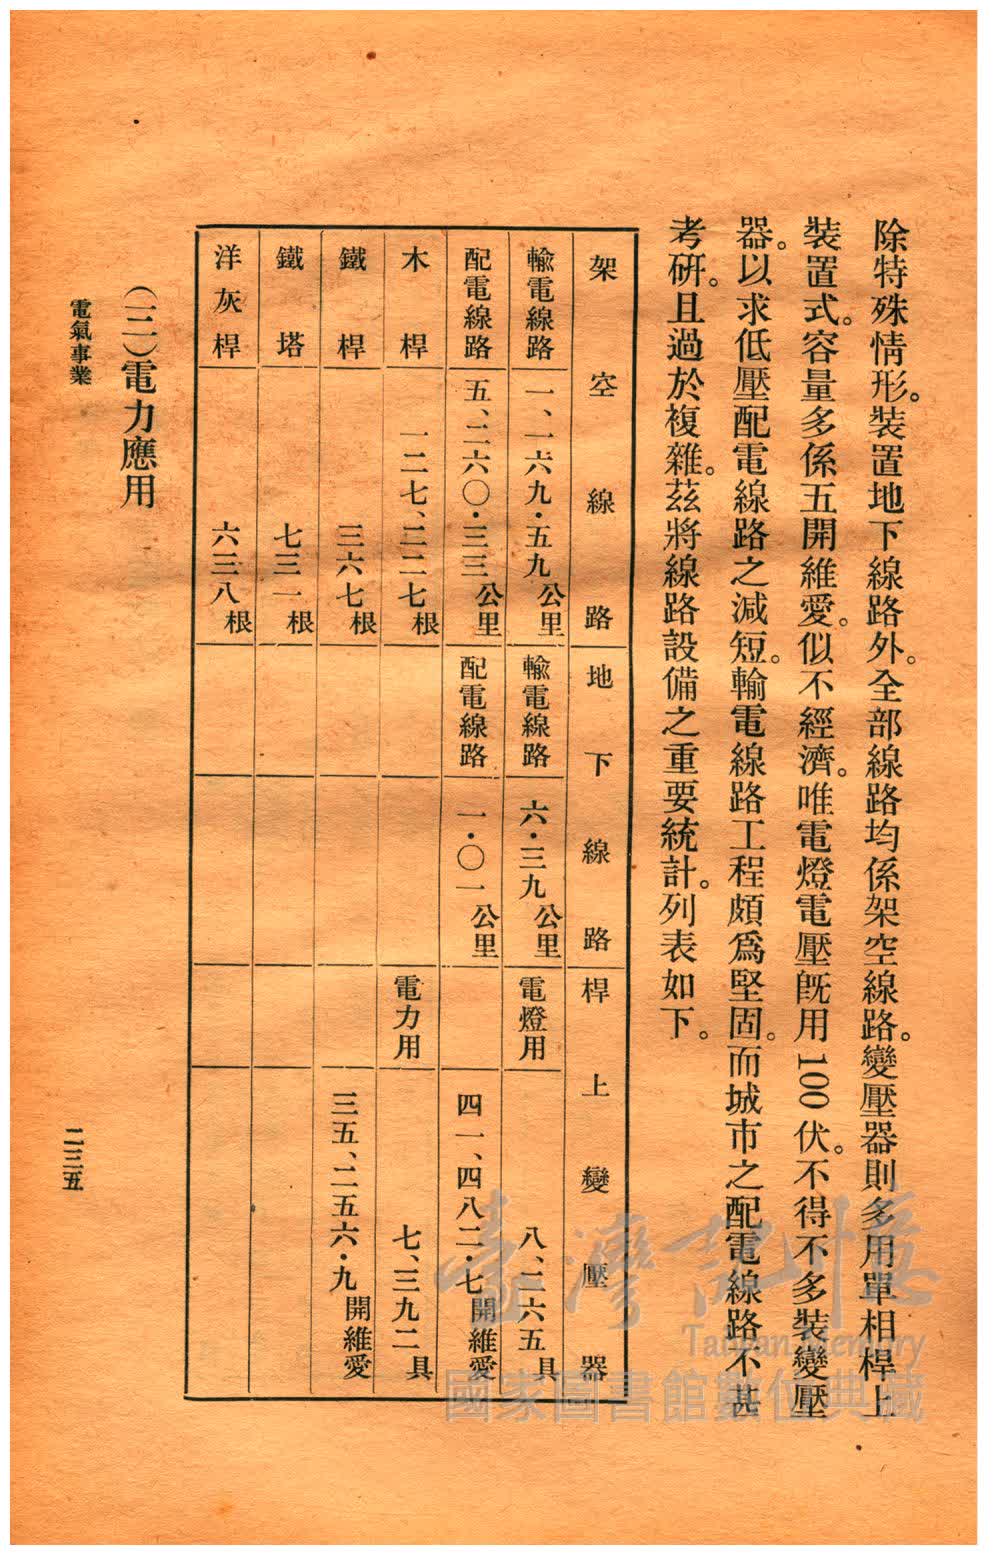 除特殊情形。裝置地下線路外。全部線路均係架空線路。變壓器則多用單相桿上
裝置式。容量多係五開維愛。似不經濟。唯電燈電壓旣用100伏。不得不多裝變壓
器。以求低壓配電線路之減短。輸電線路工程頗爲堅固。而城市之配電線路不甚
考研。且過於複雜。茲將線路設備之重要統計。列表如下。
架空線路 地下線路 桿上變壓器
輸電線路 一、一六九・五九公里 輸電線路 六・三九公里 電燈用 八、二六五具
配電線路 五、二六〇・三三公里 配電線路 一・〇一公里 四一、四八二・七開維愛
木桿 一二七、二二七根 電力用 七、三九二具
鐵桿 三六七根 三五、二五六・九開維愛
鐵塔 七三一根
洋灰桿 六三八根
(二)電力應用
電氣事業 二三五
臺灣記憶
Taiwan Memory
國家圖書館數位典藏